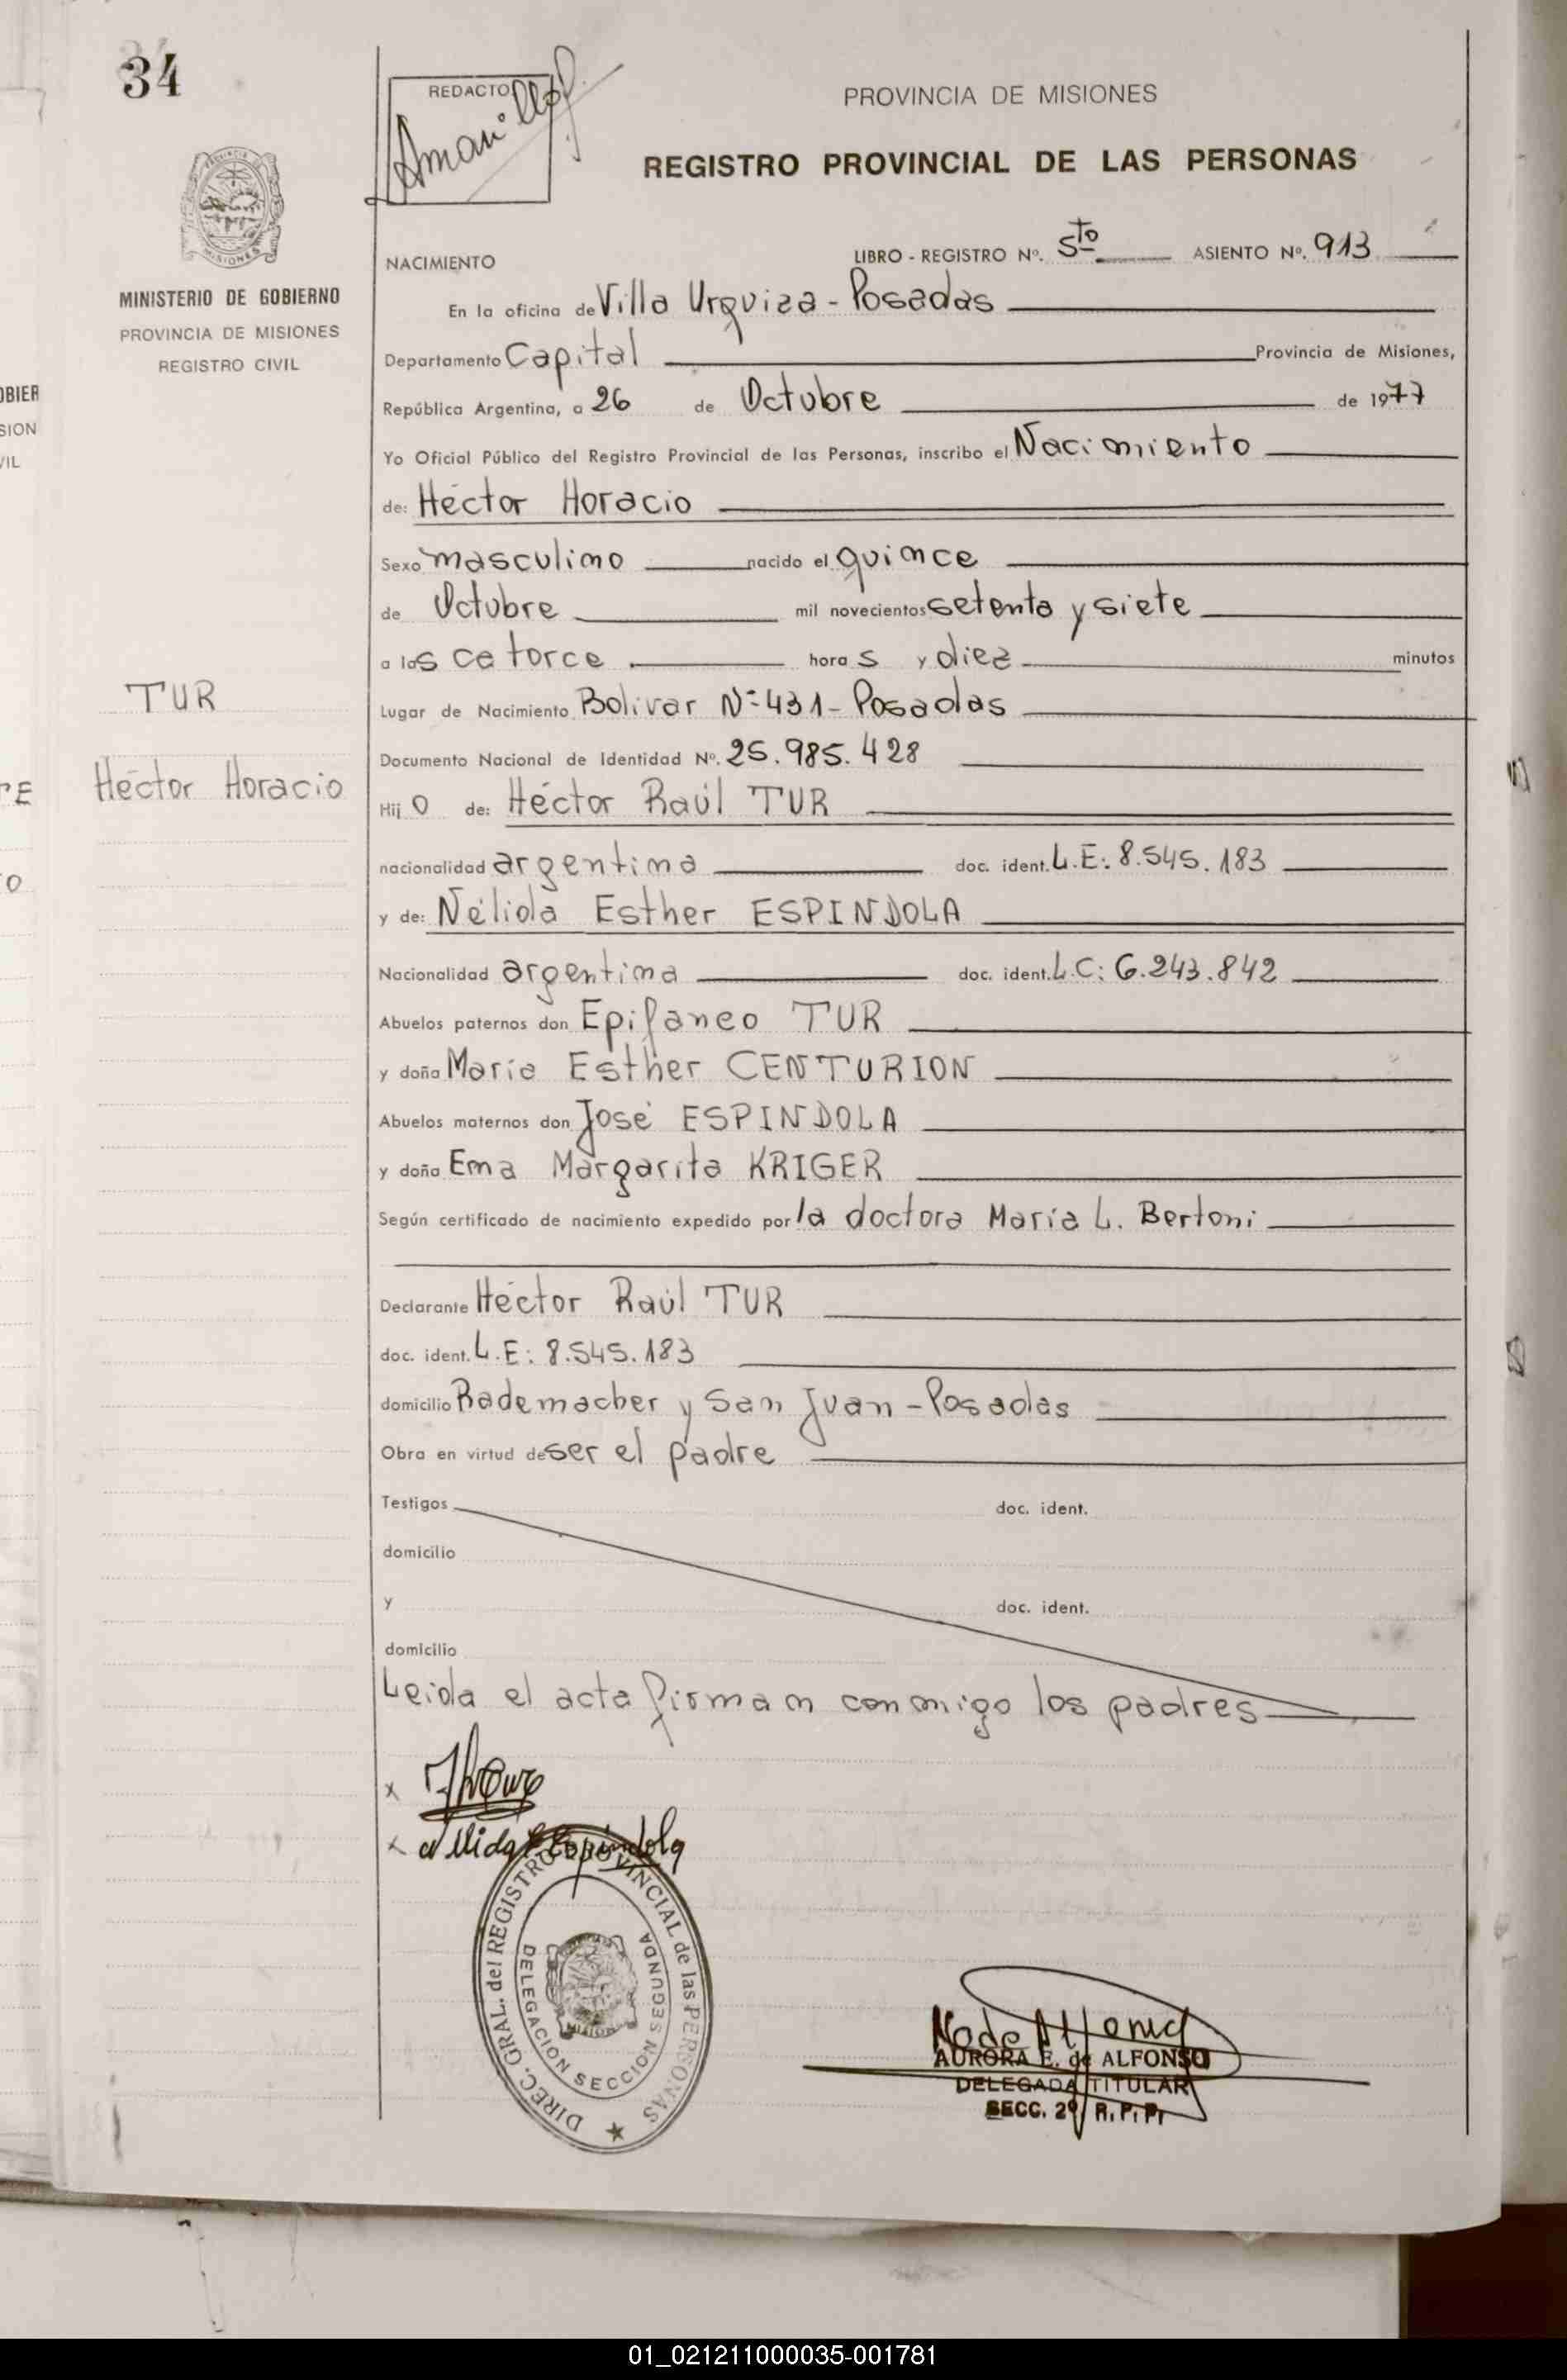 34
REDACTO
Amarilla
PROVINCIA DE MISIONES
REGISTRO PROVINCIAL DE LAS PERSONAS
NACIMIENTO
LIBRO - REGISTRO Nº. 5to ASIENTO Nº. 913
MINISTERIO DE GOBIERNO
PROVINCIA DE MISIONES
REGISTRO CIVIL
En la oficina de Villa Urquiza - Posadas
Departamento Capital Provincia de Misiones,
República Argentina, a 26 de Octubre de 1977
Yo Oficial Público del Registro Provincial de las Personas, inscribo el Nacimiento
de: Héctor Horacio
Sexo masculino nacido el quince
de Octubre mil novecientos setenta y siete
a las catorce horas y diez minutos
TUR
Lugar de Nacimiento Bolivar Nº 431 - Posadas
Documento Nacional de Identidad Nº. 25.985.428
Héctor Horacio
Hijo de: Héctor Raúl TUR
nacionalidad argentina doc. ident. L.E: 8.545.183
y de: Nélida Esther ESPINDOLA
Nacionalidad argentina doc. ident. L.C: 6.243.842
Abuelos paternos don Epifaneo TUR
y doña María Esther CENTURION
Abuelos maternos don José ESPINDOLA
y doña Ema Margarita KRIGER
Según certificado de nacimiento expedido por la doctora María L. Bertoni
Declarante Héctor Raúl TUR
doc. ident. L.E: 8.545.183
domicilio Rademacher y San Juan - Posadas
Obra en virtud de ser el padre
Testigos doc. ident.
domicilio
y doc. ident.
domicilio
Leida el acta firman conmigo los padres
x
x Espindola
DIREC. GRAL. del REGISTRO PROVINCIAL de las PERSONAS
DELEGACION SECCION SEGUNDA
AURORA E. de ALFONSO
DELEGADA TITULAR
SECC. 2º R.P.P.
01_021211000035-001781